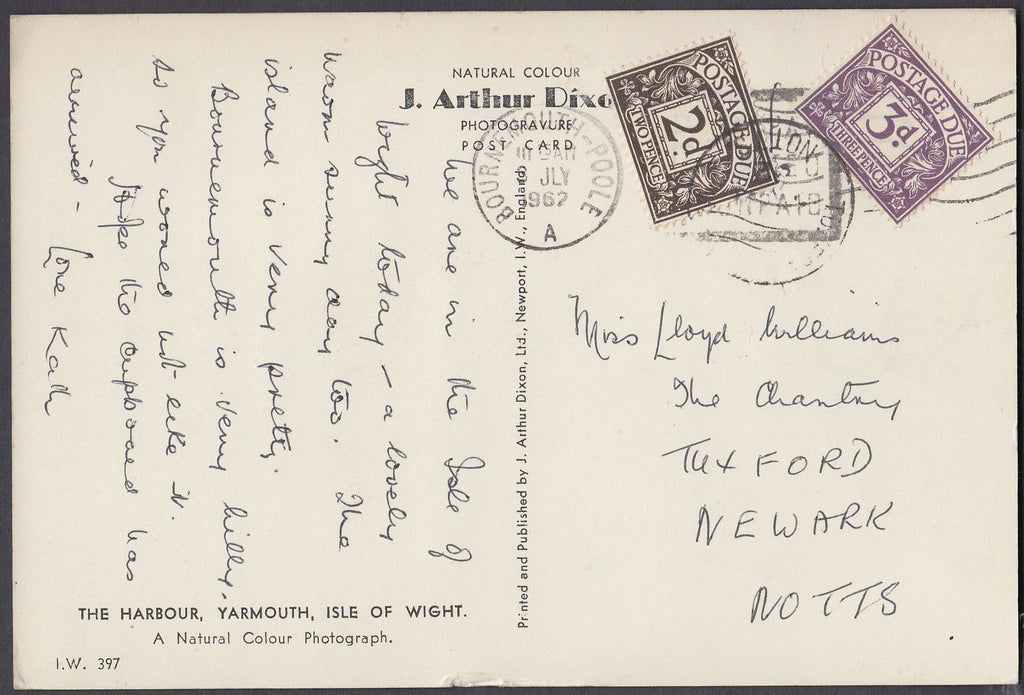 NATURAL COLOUR
J. Arthur Dixo
PHOTOGRAVURE
POST CARD
We are in the Isle of
Wight today – a lovely
warm sunny day too. The
island is very pretty.
Bournemouth is very hilly.
so you would not like it.
Hope the cupboard has
arrived –
Love Kath
THE HARBOUR, YARMOUTH, ISLE OF WIGHT.
A Natural Colour Photograph.
I.W. 397
Printed and Published by J. Arthur Dixon, Ltd., Newport, I.W., England
BOURNEMOUTH-POOLE
JLY
1962
A
POSTAGE DUE
2d.
TWO PENCE
POSTAGE DUE
3d.
THREE PENCE
Miss Lloyd Williams
The Chantry
TUXFORD
NEWARK
NOTTS